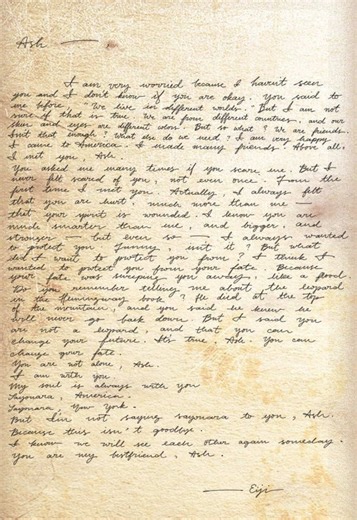 Ash —
I am very worried because I haven't seen
you and I don't know if you are okay. You said to
me before, "We live in different worlds." But I am not
sure if that is true. We are from different countries. and our
skin and eyes are different colors. But so what? We are friends.
Isn't that enough? What else do we need? I am very happy
I came to America. I made many friends. Above all,
I met you, Ash.
You asked me many times if you scare me. But I
never felt scared of you, not even once. From the
first time I met you. Actually, I always felt
that you are hurt, much more than me —
that your spirit is wounded. I know you are
much smarter than me, and bigger, and
stronger — but even so — I always wanted
to protect you. Funny, isn't it? But what
did I want to protect you from? I think I
wanted to protect you from your fate. Because
your fate was sweeping you away, like a flood.
Do you remember telling me about the leopard
in the Hemingway book? He died at the top
of the mountain, and you said he knew he
will never go back down. But I said you
are not a leopard. and that you can
change your future. It's true, Ash. You can
change your fate.
You are not alone, Ash.
I am with you
My soul is always with you
Sayonara, America.
Sayonara, New York.
But I'm not saying sayonara to you, Ash.
Because this isn't goodbye.
I know we will see each other again someday.
You are my bestfriend, Ash.
— Eiji